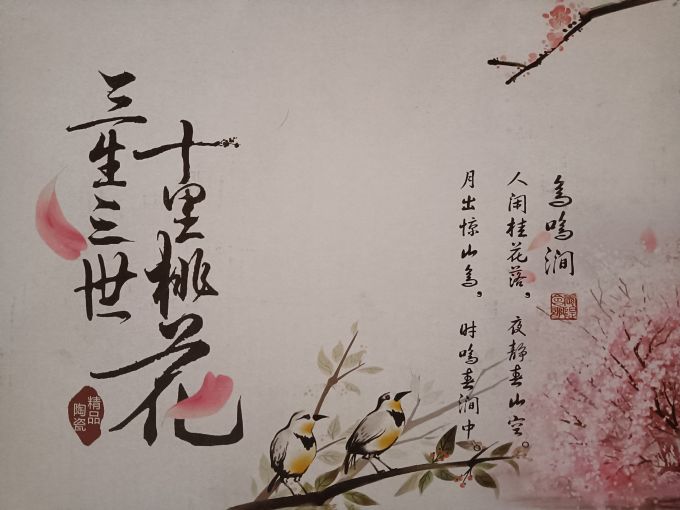 三生三世
十里桃花
精品
陶瓷
鸟鸣涧
人闲桂花落。夜静春山空。
月出惊山鸟。时鸣春涧中。